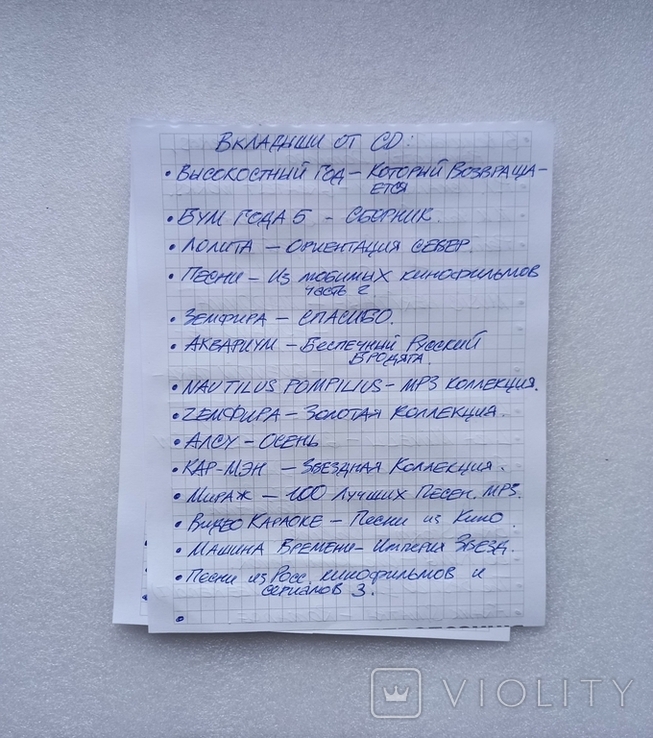 Вкладыши от CD:
• Высокостный год – Который возвраща-
ется
• Бум года 5 – Сборник.
• Лолита – Ориентация север
• Песни – Из любимых кинофильмов
часть 2
• Земфира – Спасибо.
• Аквариум – Беспечный Русский
Бродяга.
• NAUTILUS POMPILIUS – MP3 Коллекция.
• Zемфира – Золотая Коллекция.
• Алсу – Осень
• Кар-Мэн – Звездная Коллекция.
• Мираж – 100 Лучших Песен. MP3.
• Видео Караоке – Песни из Кино.
• Машина Времени – Империя Звезд.
• Песни из Росс. кинофильмов и
сериалов 3.
•
VIOLITY